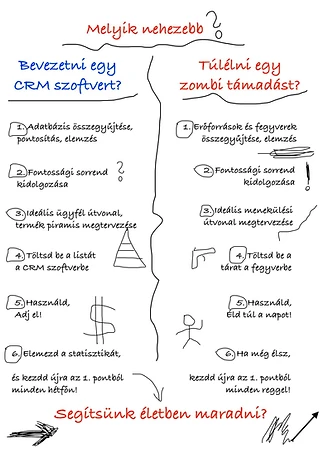 Melyik nehezebb ?
Bevezetni egy
CRM szoftvert?
1. Adatbázis összegyűjtése,
pontosítás, elemzés
2. Fontossági sorrend ?
kidolgozása
3. Ideális ügyfél útvonal,
termék piramis megtervezése
4. Töltsd be a listát
a CRM szoftverbe
5. Használd,
Adj el!
$
6. Elemezd a statisztikát,
és kezdd újra az 1. pontból
minden hétfőn!
Túlélni egy
zombi támadást?
1. Erőforrások és fegyverek
összegyűjtése, elemzés
2. Fontossági sorrend !
kidolgozása
3. Ideális menekülési
útvonal megtervezése
4. Töltsd be a
tárat a fegyverbe
5. Használd,
Éld túl a napot!
6. Ha még élsz,
kezdd újra az 1. pontból
minden reggel!
Segítsünk életben maradni?